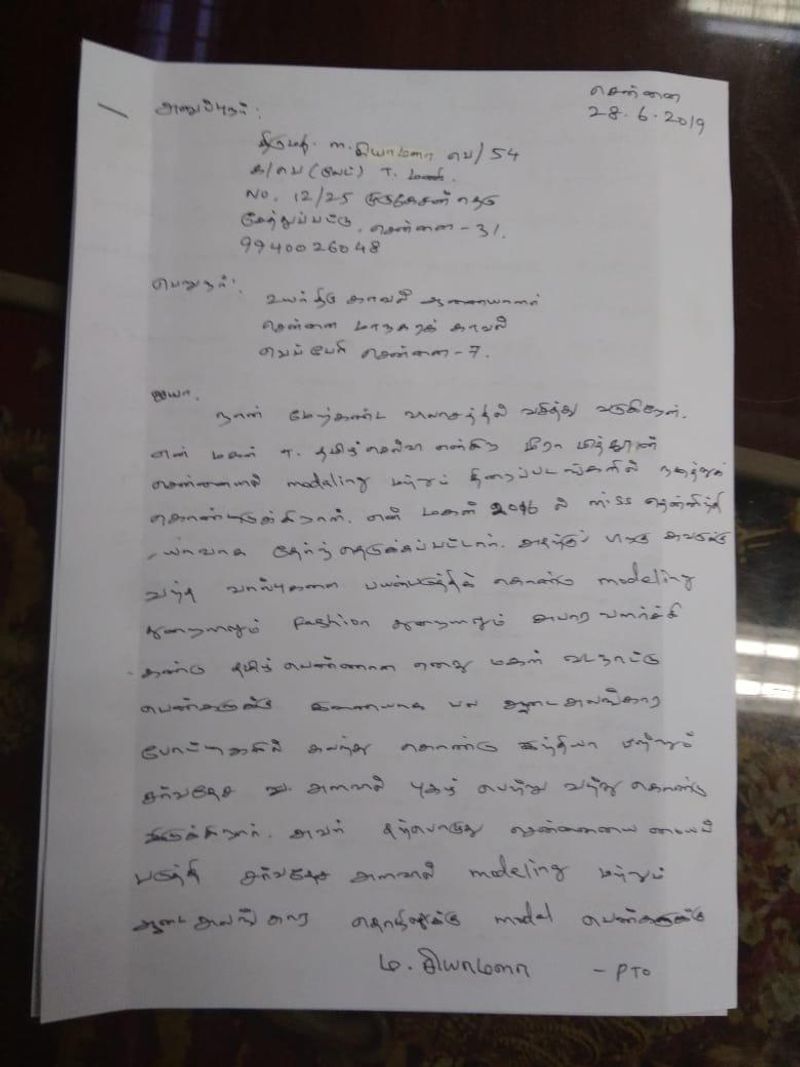 சென்னை
28.6.2019
அனுப்புநர்:
திருமதி. ம. சியாமளா வய/54
க/பெ (லேட்) T. மணி.
No. 12/25 முருகேசன் தெரு
சேத்துப்பட்டு, சென்னை-31.
9940026048
பெறுநர்:
உயர்திரு காவல் ஆணையாளர்
சென்னை மாநகரக் காவல்
வேப்பேரி சென்னை-7.
ஐயா,
நான் மேற்கண்ட விலாசத்தில் வசித்து வருகிறேன்.
என் மகள் த. தமிழ்செல்வி என்கிற மீரா மித்தூன்
சென்னையில் modeling மற்றும் திரைப்படங்களில் நடித்துக்
கொண்டிருக்கிறாள். என் மகள் 2016 ல் Miss தென்னிந்தி
யாவாக தேர்ந்தெடுக்கப்பட்டாள். அதற்குப் பிறகு அவருக்கு
வந்த வாய்ப்புகளை பயன்படுத்திக் கொண்டு modeling
துறையிலும் Fashion துறையிலும் அபார வளர்ச்சி
கண்டு தமிழ் பெண்ணான எனது மகள் வடநாட்டு
பெண்களுக்கு இணையாக பல ஆடை அலங்கார
போட்டிகளில் கலந்து கொண்டு இந்தியா மற்றும்
சர்வதேச அளவில் புகழ் பெற்று வந்து கொண்டு
இருக்கிறார். அவர் தற்பொழுது சென்னையை மையப்
படுத்தி சர்வதேச அளவில் modeling மற்றும்
ஆடை அலங்கார தொழிலுக்கு model பெண்களுக்கு
ம. சியாமளா - PTO